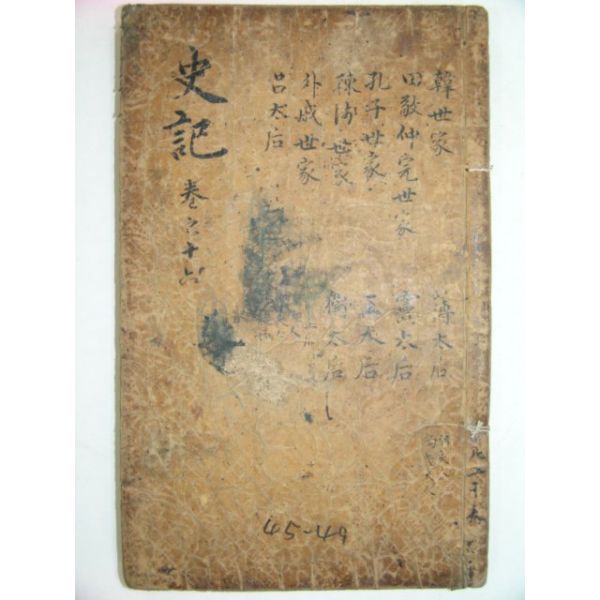 史記
卷之十六
韓世家
田敬仲完世家
孔子世家
陳涉世家
外戚世家
呂太后
薄太后
竇太后
王太后
衛太后
45-49